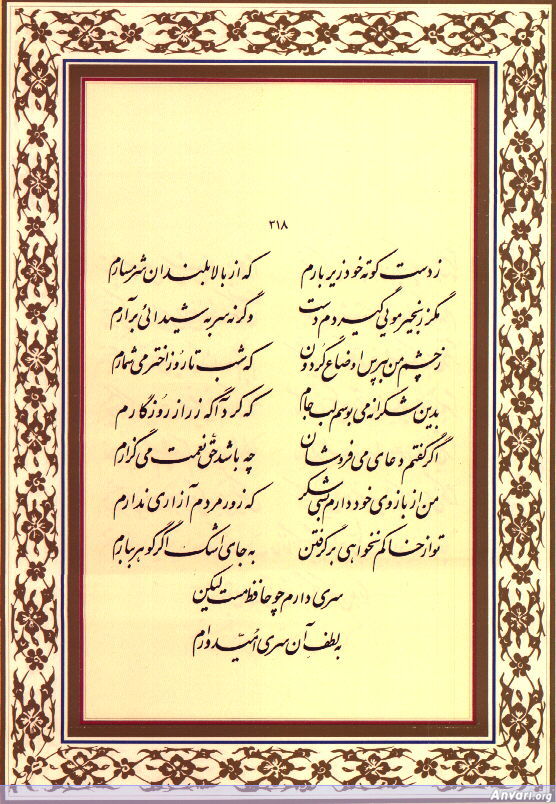 ۳۱۸
ز دست کوته خود زیر بارم که از بالابلندان شرمسارم
مگر زنجیر مویی گیردم دست وگرنه سر به شیدائی برآرم
ز چشم من بپرس اوضاع گردون که شب تا روز اختر می شمارم
بدین شکرانه می بوسم لب جام که کرد آگه ز راز روزگارم
اگر گفتم دعای می فروشان چه باشد حق نعمت می گزارم
من از بازوی خود دارم بسی شکر که زور مردم آزاری ندارم
تو از خاکم نخواهی برگرفتن به جای اشک اگر گوهر ببارم
سری دارم چو حافظ مست لیکن
به لطف آن سری امّیدوارم
Anvari.org